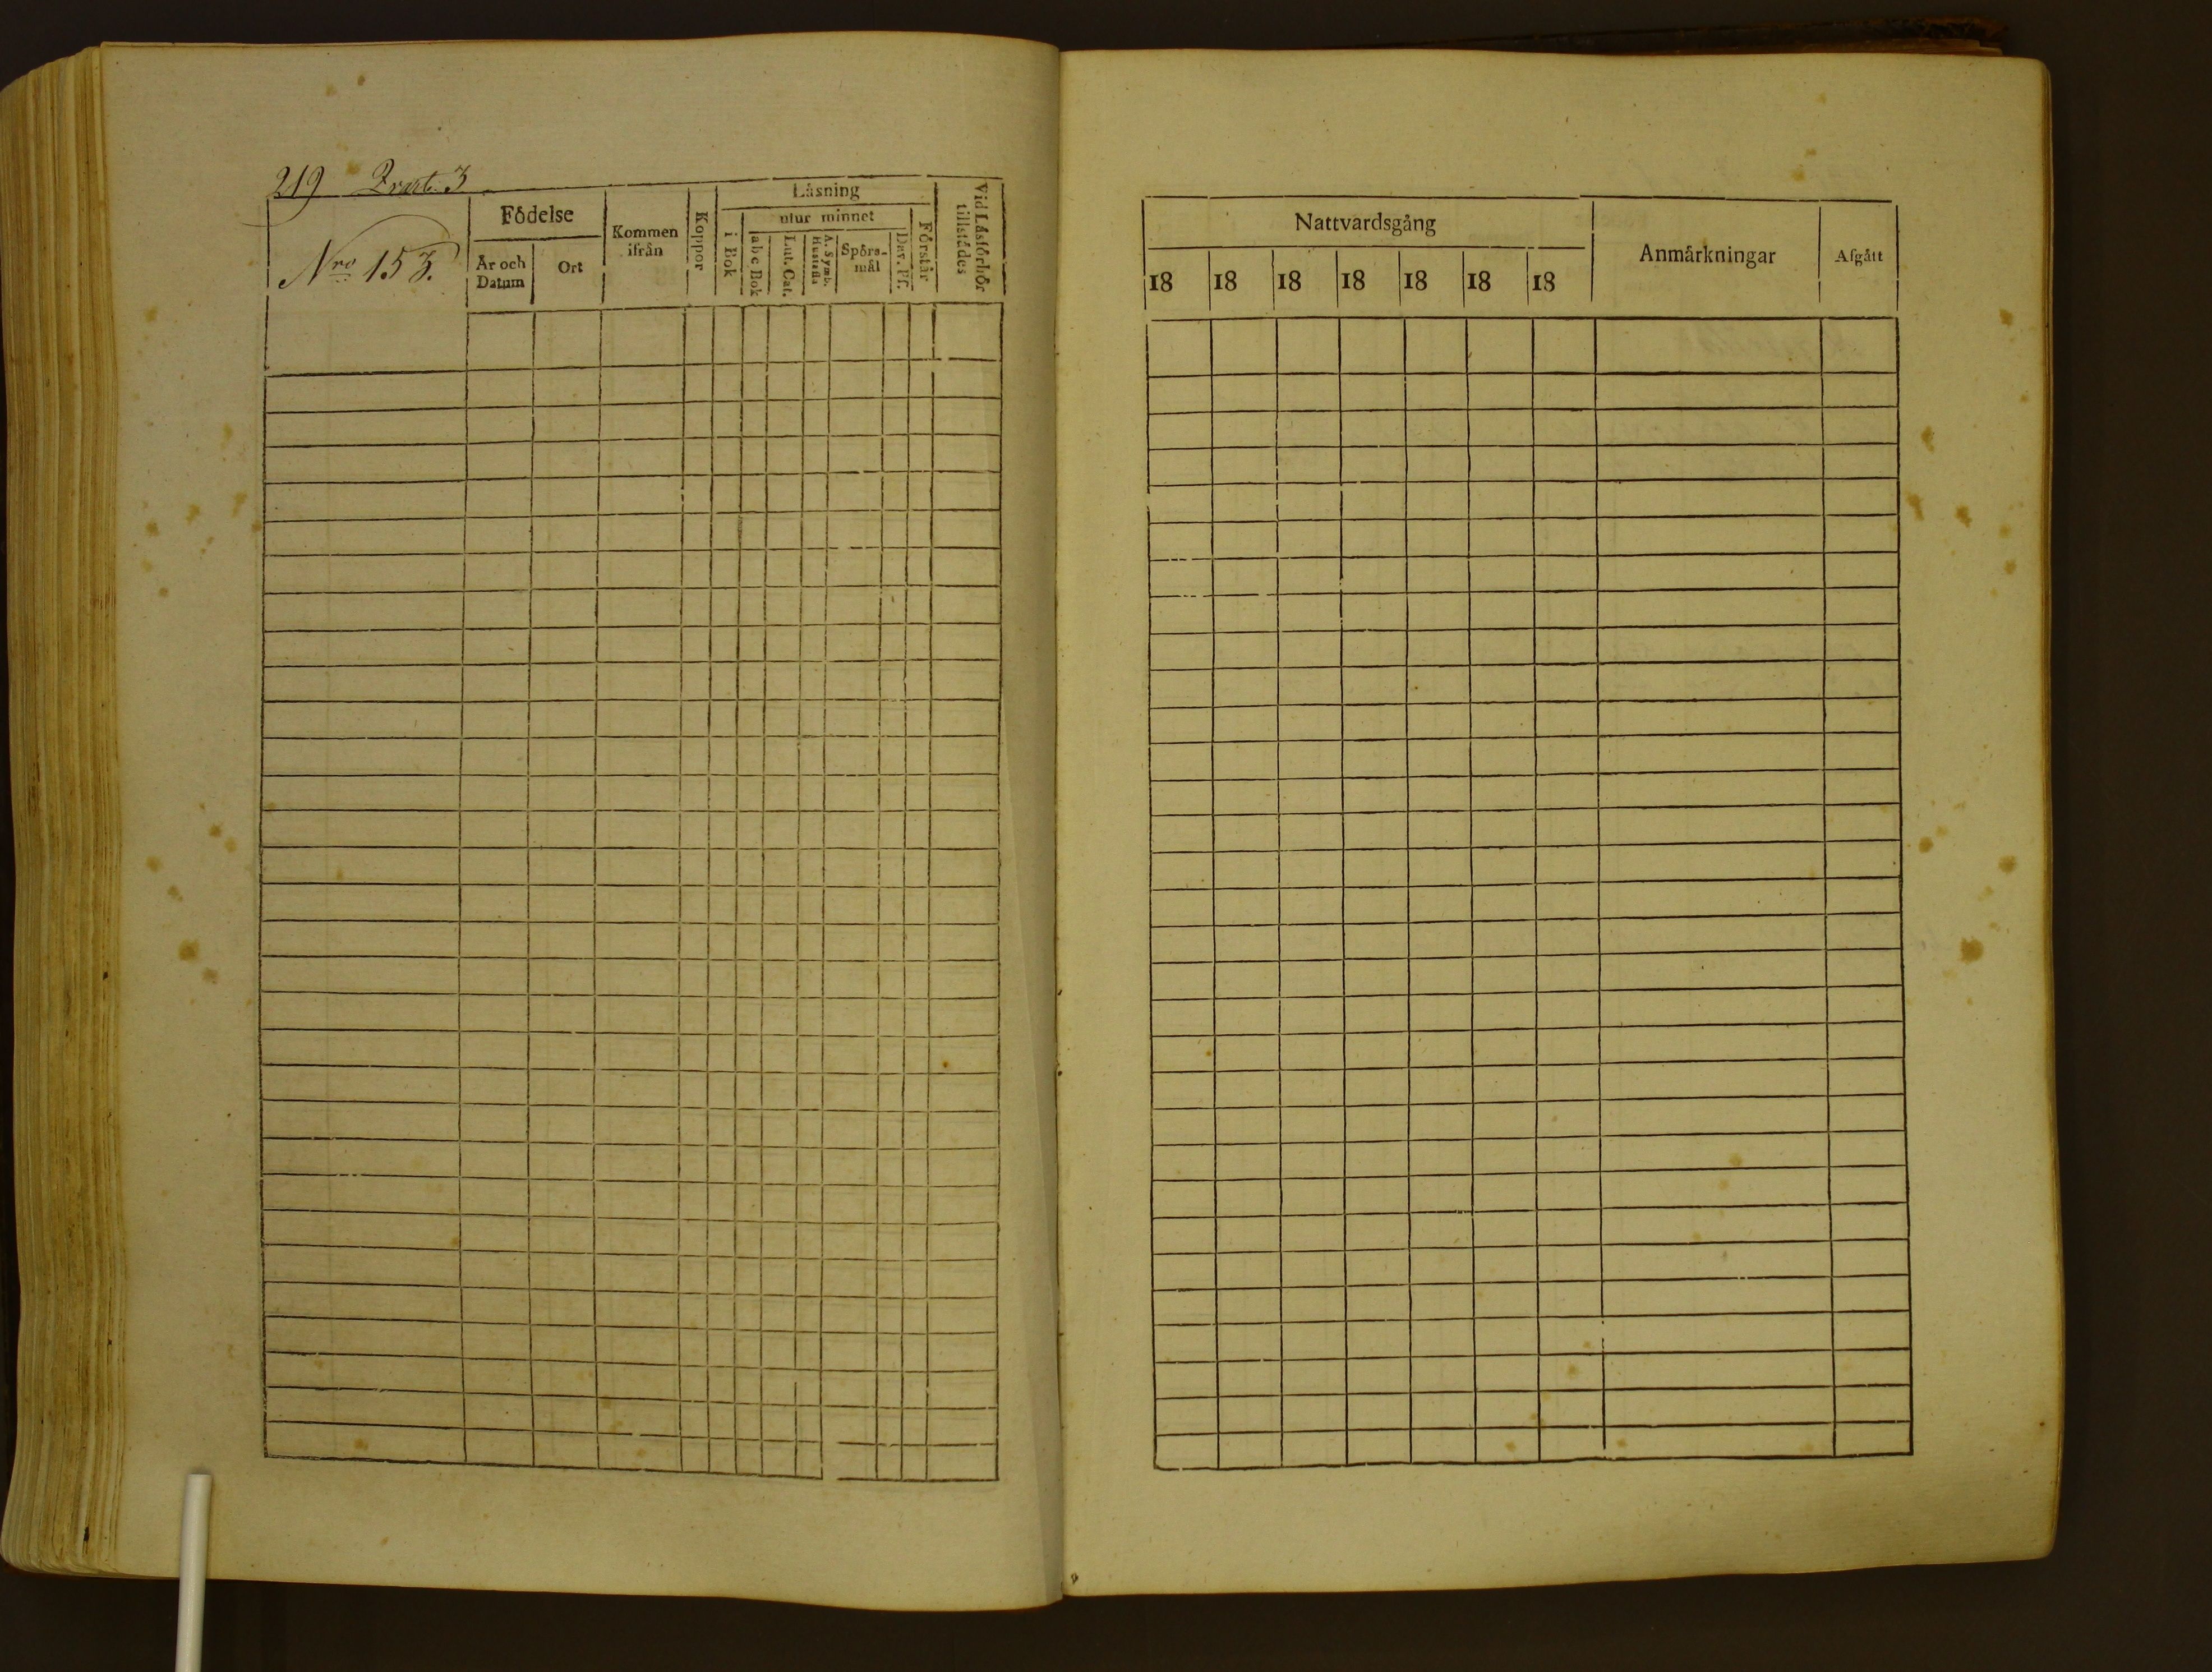 219 Qvart. 3
Nro 153.
Födelse
År och Datum
Ort
Kommen ifrån
Koppor
Läsning
i Bok
utur minnet
abc Bok
Lut. Cat.
A. Symb. Hustafla
Spörs-mål
Dav. Ps.
Förstår
Vid Läsförhör tillstädes
Nattvardsgång
18 18 18 18 18 18 18
Anmärkningar
Afgått